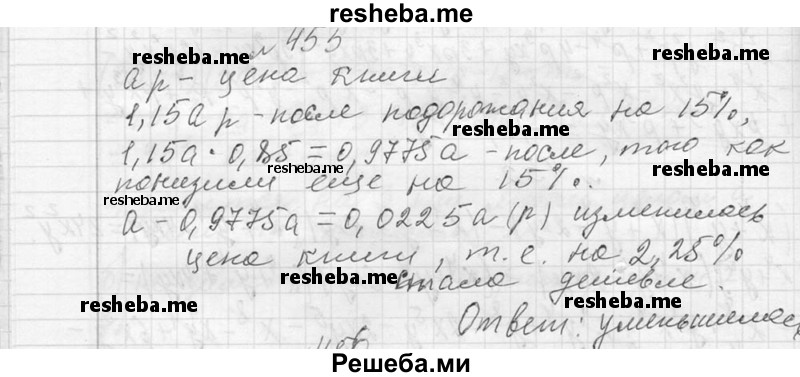 resheba.me
№ 455
resheba.me resheba.me
а р - цена книги
resheba.me
1,15а р - после подорожания на 15%,
resheba.me
1,15а · 0,85 = 0,9775а - после, того как
resheba.me
понизили еще на 15%.
resheba.me
а - 0,9775а = 0,0225а (р) изменилась
цена книги, т. е. на 2,25%
resheba.me
стала дешевле.
resheba.me resheba.me
Ответ: уменьшилась
456
Решеба.ми